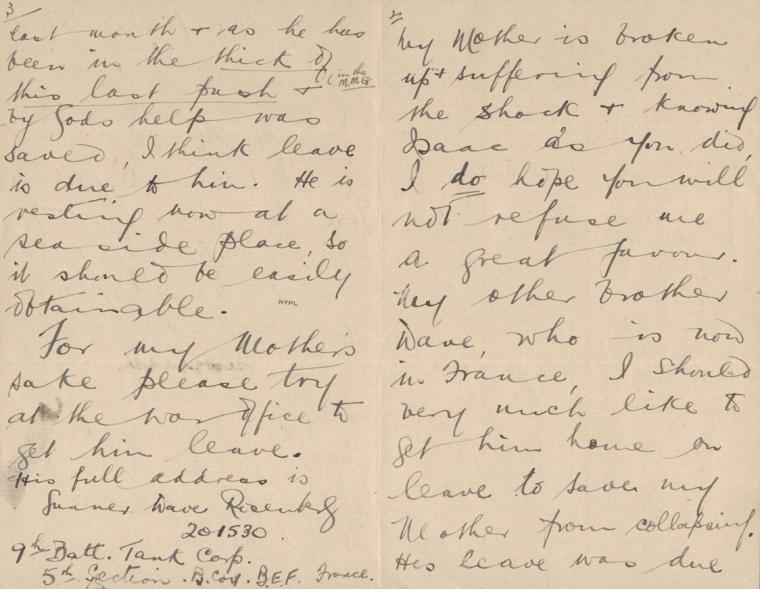 2/
My Mother is broken
up & suffering from
the shock & knowing
Isaac as you did,
I do hope you will
not refuse me
a great favour.
My other brother
Dave, who is now
in France, I should
very much like to
get him home on
leave to save my
Mother from collapsing.
His leave was due
3/
last month & as he has
been in the thick of
(in the
MMG
this last push &
by Gods help was
saved, I think leave
is due to him. He is
resting now at a
sea side place, so
it should be easily
obtainable.
NYPL
For my Mother's
sake please try
at the war office to
get him leave.
His full address is
Gunner Dave Rosenberg
201530.
9th Batt. Tank Corp.
5th Section. B. Coy. B.E.F. France.